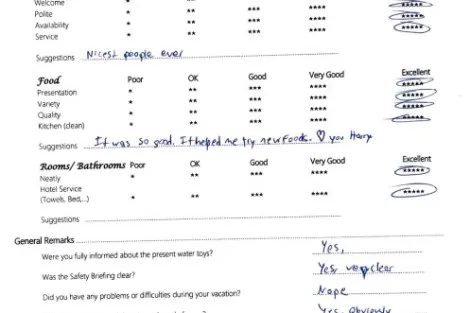 Welcome * ** *** **** *****
Polite * ** *** **** *****
Availability * ** *** **** *****
Service * ** *** **** *****
Suggestions Nicest people ever
Food Poor OK Good Very Good Excellent
Presentation * ** *** **** *****
Variety * ** *** **** *****
Quality * ** *** **** *****
Kitchen (clean) * ** *** **** *****
Suggestions It was so good. It helped me try new foods. ♡ you Harry
Rooms/ Bathrooms Poor OK Good Very Good Excellent
Neatly * ** *** **** *****
Hotel Service
(Towels, Bed,..) * ** *** **** *****
Suggestions
General Remarks
Were you fully informed about the present water toys? Yes,
Was the Safety Briefing clear? Yes, very clear
Did you have any problems or difficulties during your vacation? Nope
Yes, Obviously